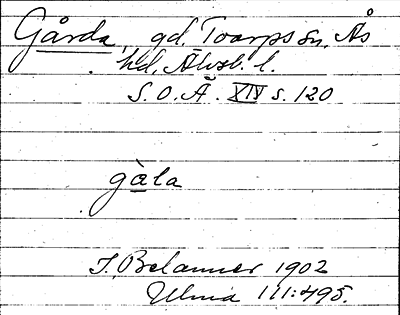 Gårda, gd. Toarps sn. Ås
hd. Älvsb. l.
S.O.Ä. XIV s. 120
gàla
J. Belanner 1902
Ulma 111:495.